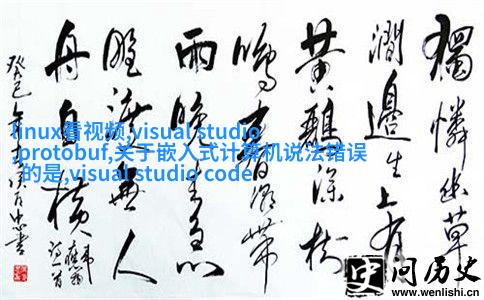 獨憐幽草
澗邊生上有
黄鸝深樹
鳴春潮帶
雨晚来急
野渡無人
舟自横
癸巳年
linux看视频,visual studio
,protobuf,关于嵌入式计算机说法错误
的是,visual studio code
史问历史
www.wenlishi.cn